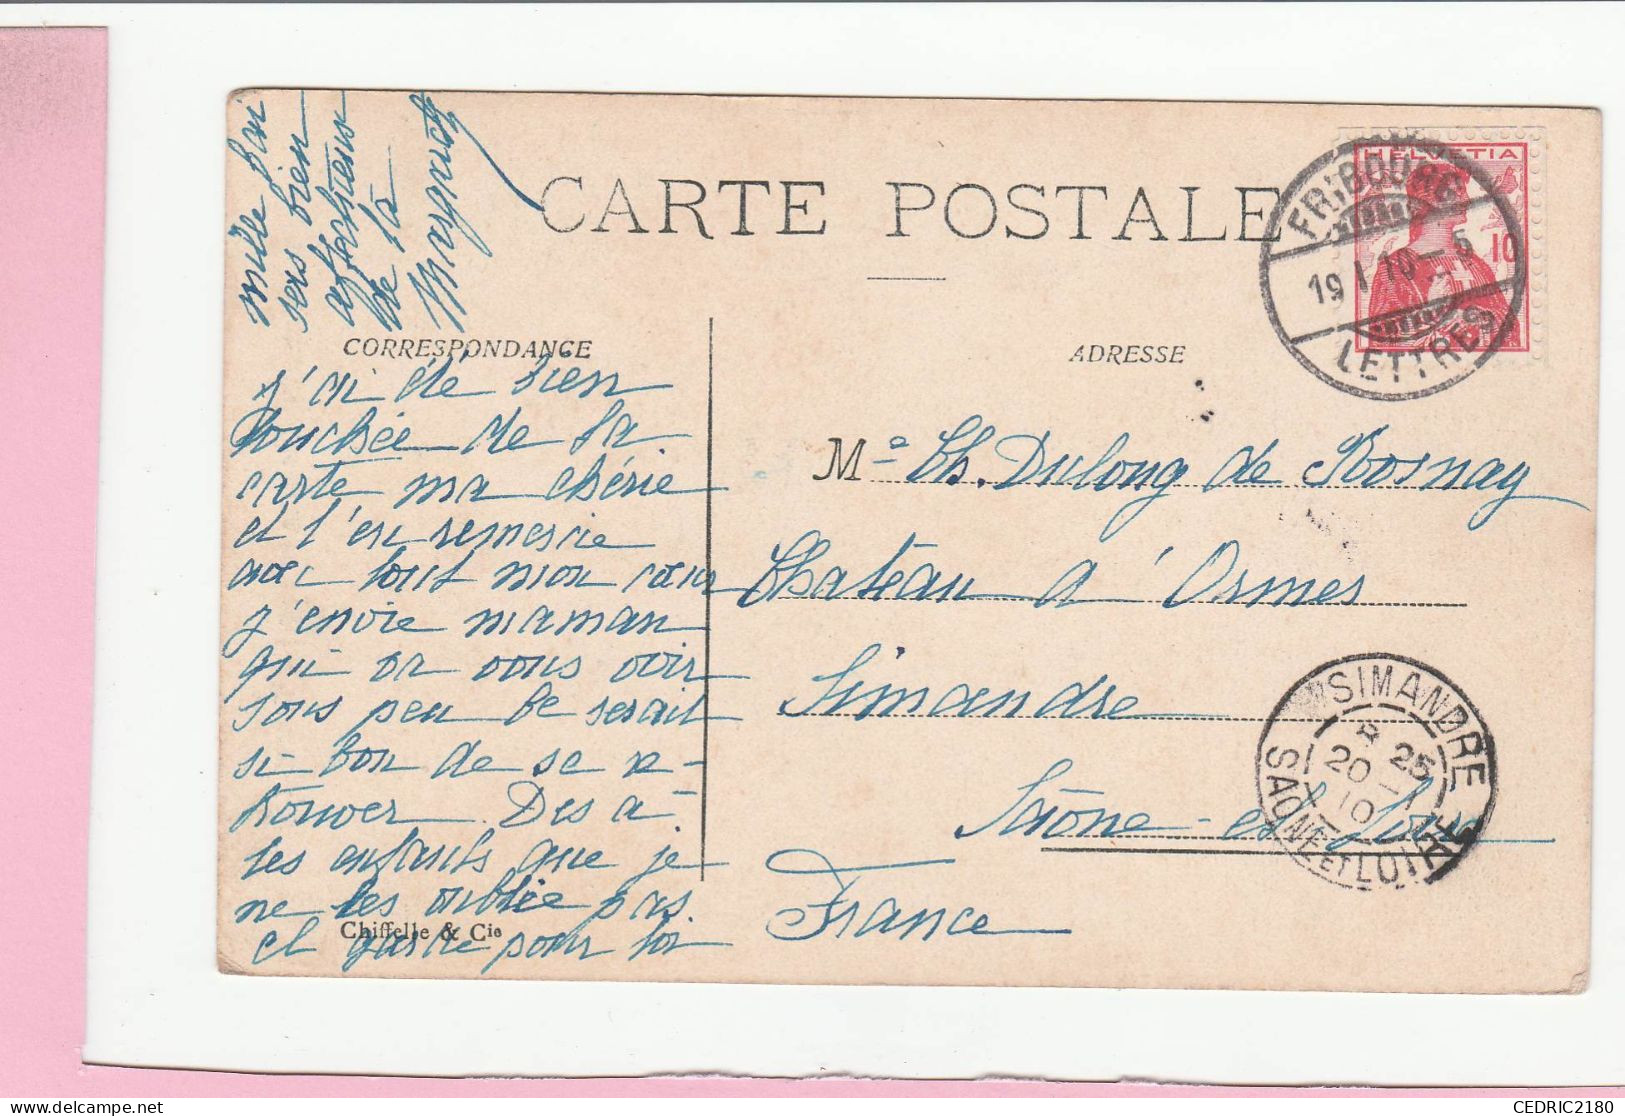 CARTE POSTALE
CORRESPONDANCE
ADRESSE
j'ai été bien
touchée de ta
carte ma chérie
et t'en remercie
avec tout mon cœur
j'envie maman
qui va vous voir
sous peu ce serait
si bon de se re-
trouver. Dis à
tes enfants que je
ne les oublie pas
et garde pour toi
mille bai
sers bien
affectueux
de ta
Chiffelle & Cie
Me Ch. Dulong de Rosnay
Château d'Ormes
Simandre
Saône-et-Loire
France
HELVETIA
10
FRIBOURG
19 I 10 - 5
LETTRES
SIMANDRE
25
20 - 1
10
SAONE ET LOIRE
CEDRIC2180